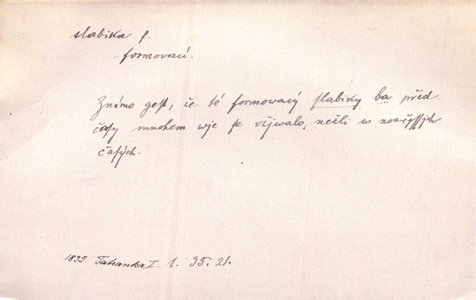 slabika f.
formovací.
Známo gest, že té formowacý slabiky ba před
časy mnohem wjc se vžjwalo, nežli w nowěgssjch
časých.
1832 Tatranka I. 1. 38. 21.